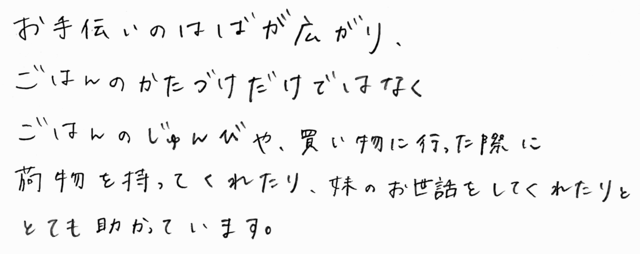 お手伝いのはばが広がり、
ごはんのかたづけだけではなく
ごはんのじゅんびや、買い物に行った際に
荷物を持ってくれたり、妹のお世話をしてくれたりと
とても助かっています。